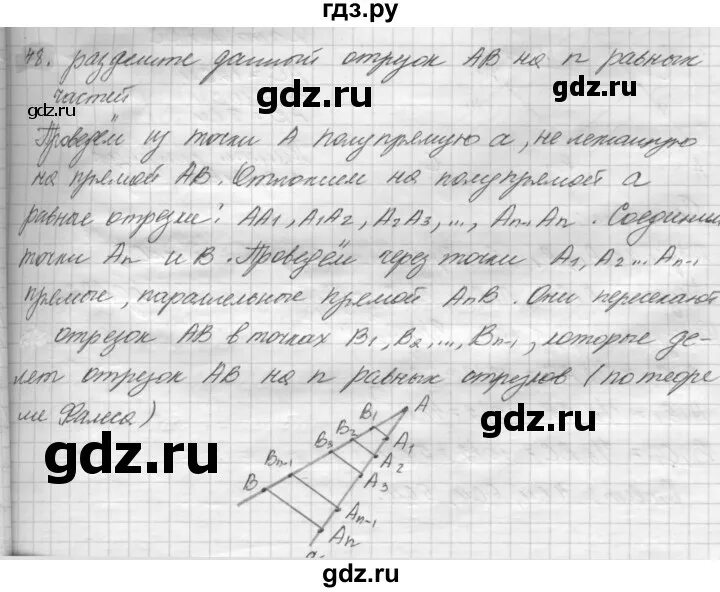 гдз.ру
48. разделите данный отрезок AB на n равных
gdz.ru gdz.ru gdz.ru
частей
Проведём из точки A полупрямую a, не лежащую
на прямой AB. Отложим на полупрямой a
равные отрезки: AA1, A1A2, A2A3, ..., An-1An. Соединим
точки An и B. Проведём через точки A1, A2 ... An-1
прямые, параллельные прямой AnB. Они пересекают
отрезок AB в точках B1, B2, ..., Bn-1, которые де-
лят отрезок AB на n равных отрезков (по теоре
ме Фалеса)
gdz.ru gdz.ru
A
B1
A1
B2
A2
B3
A3
Bn-1
B
An-1
An
a
gdz.ru
gdz.ru